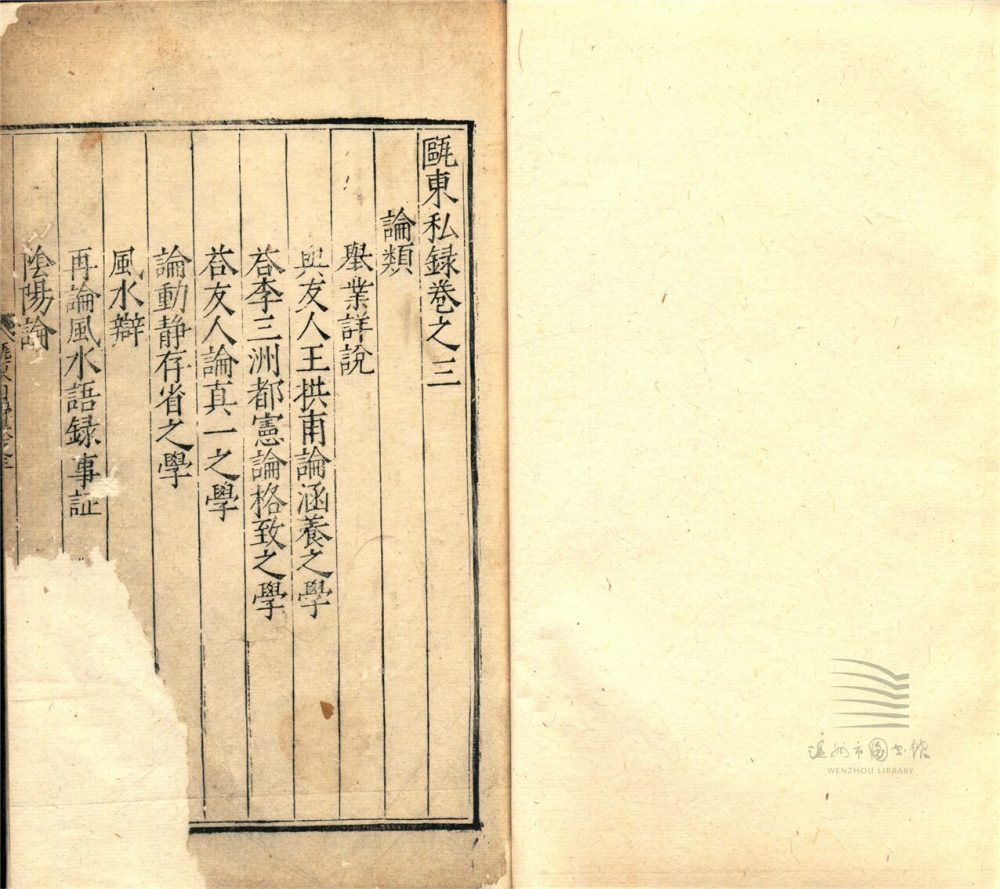 甌東私録卷之三
論類
舉業詳說
與友人王拱甫論涵養之學
荅李三洲都憲論格致之學
荅友人論真一之學
論動静存省之學
風水辯
再論風水語録事証
陰陽論
温州市圖书馆
WENZHOU LIBRARY